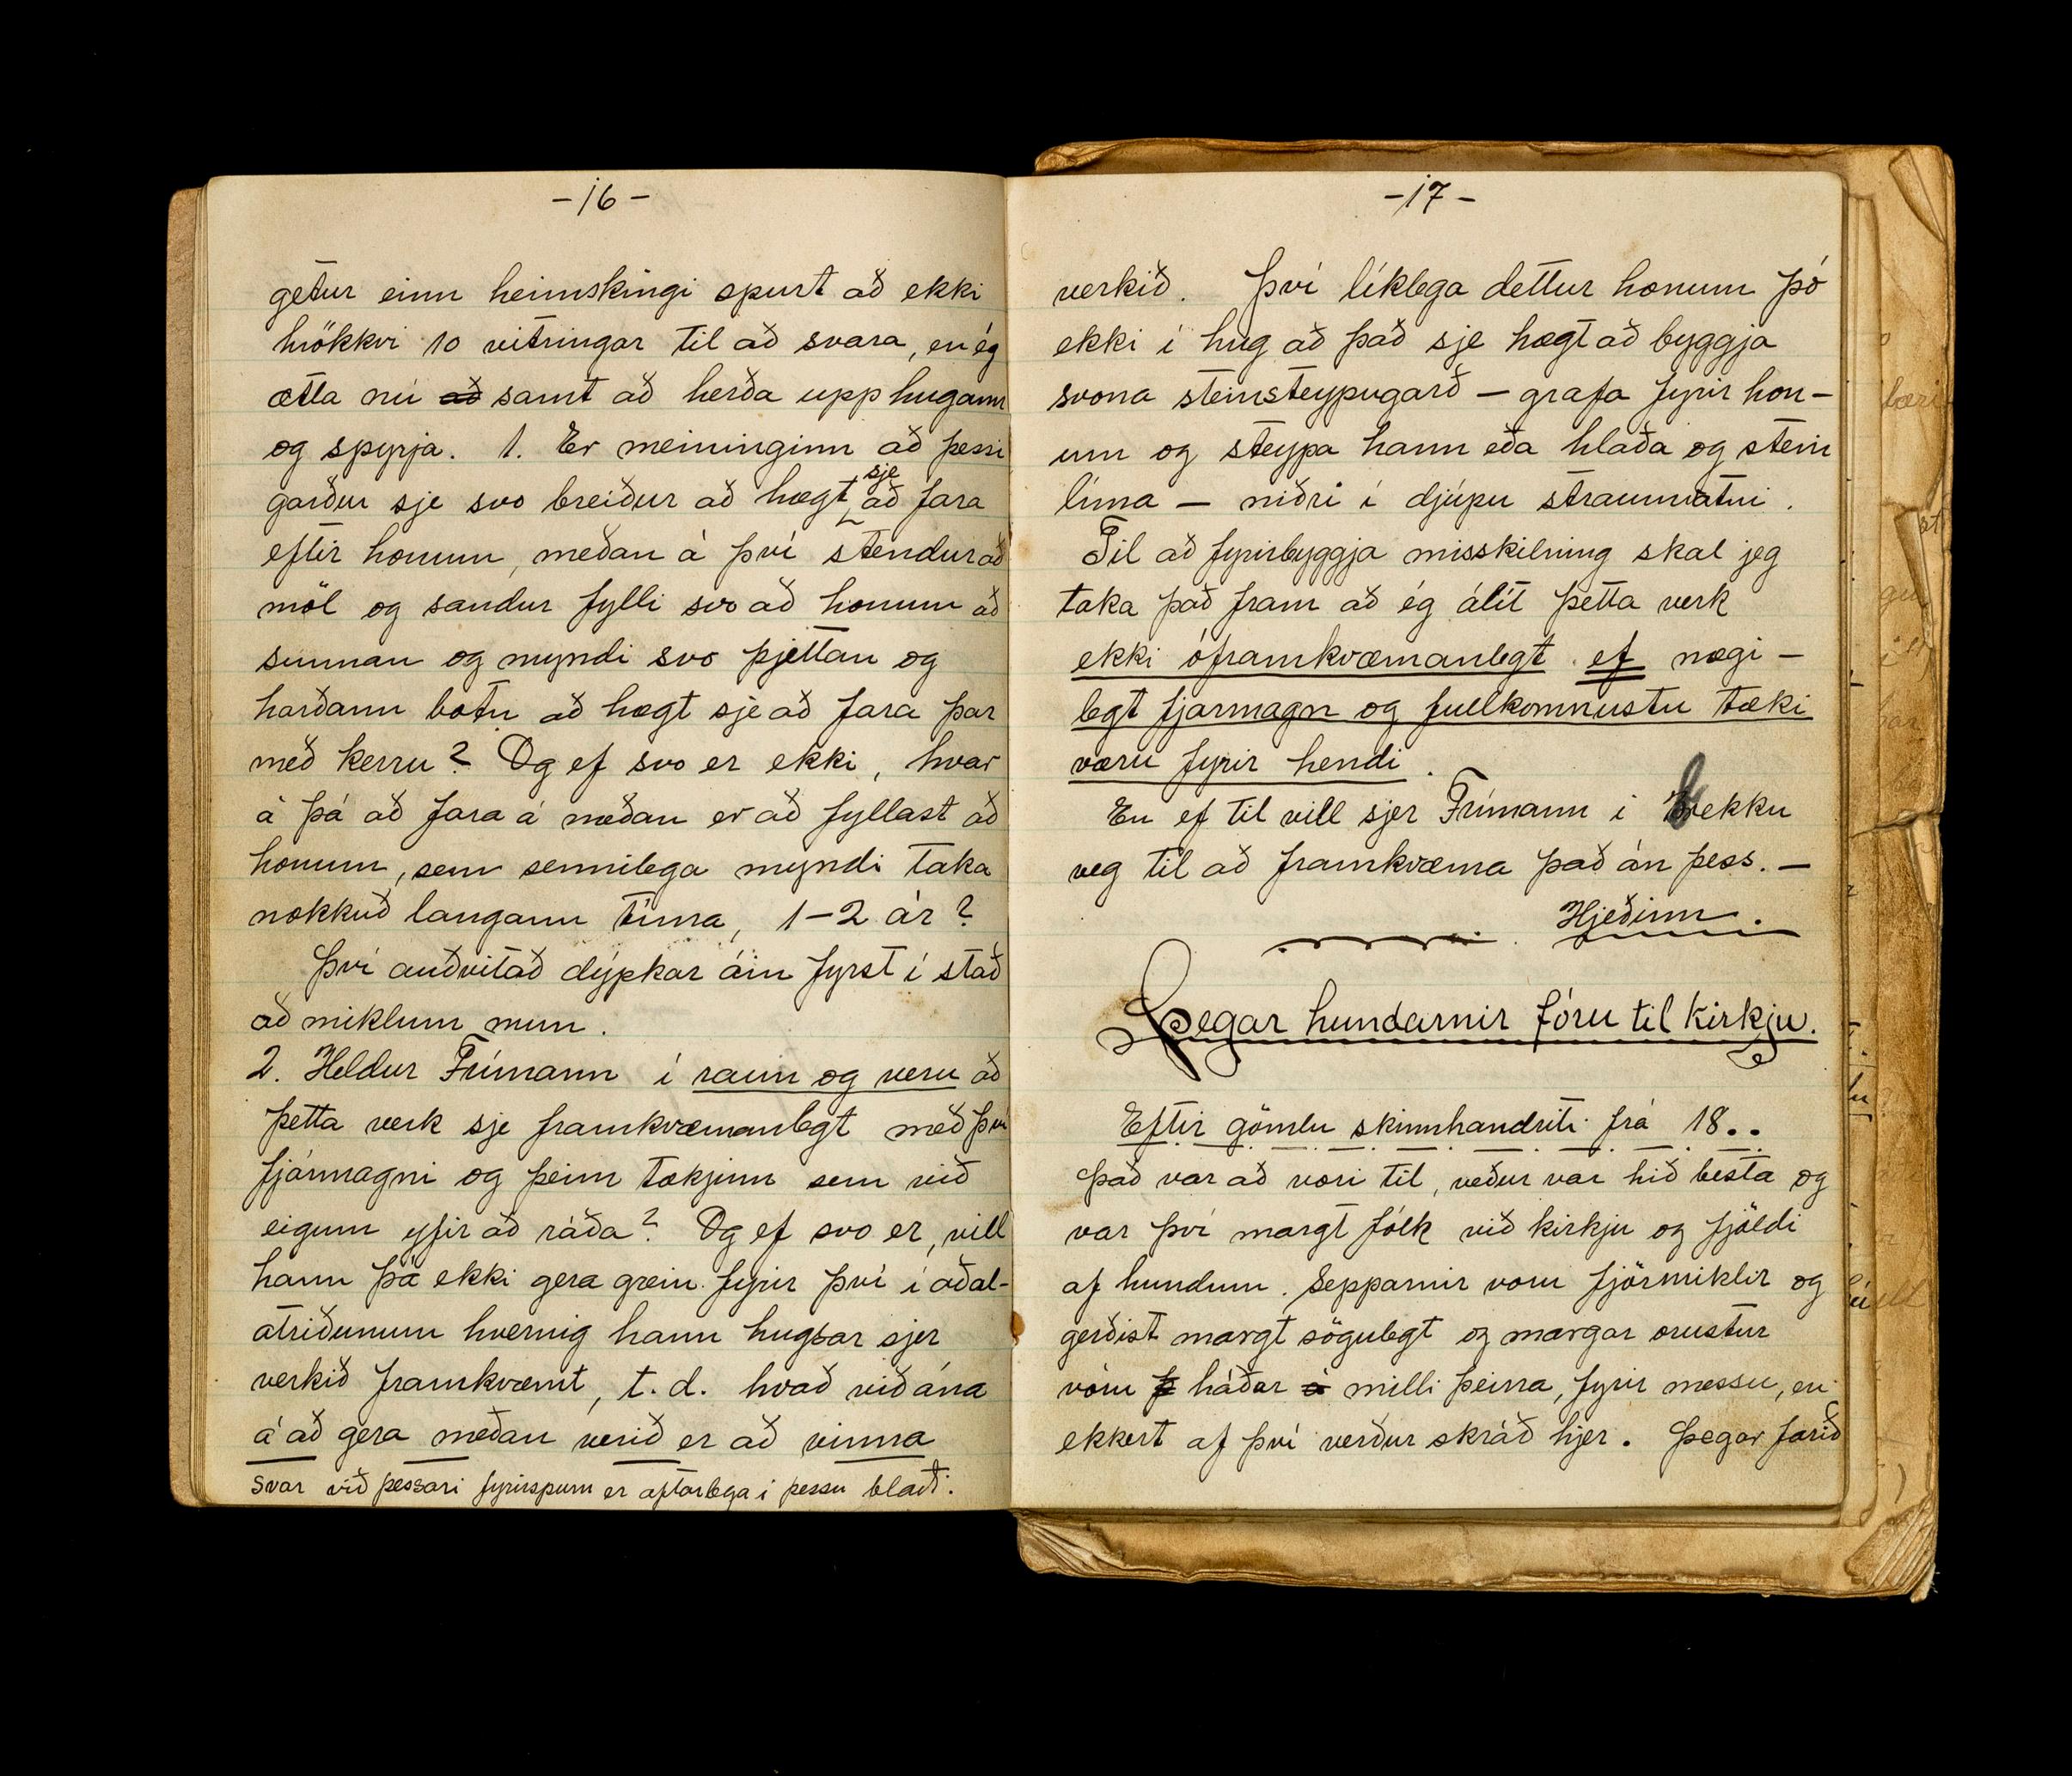 -16-
getur einn heimskingi spurt að ekki
hrökkvi 10 vitringar til að svara, en ég
ætla nú að samt að herða upp hugann
og spyrja. 1. Er meininginn að þessi
garður sje svo breiður að hægt sje að fara
eftir honum, meðan á því stendur að
möl og sandur fylli svo að honum að
sunnan og myndi svo þjettan og
harðann botn að hægt sje að fara þar
með kerru? Og ef svo er ekki, hvar
á þá að fara á meðan er að fyllast að
honum, sem sennilega myndi taka
nokkuð langann tíma, 1-2 ár?
Því auðvitað dýpkar áin fyrst í stað
að miklum mun.
2. Heldur Frímann í raun og veru að
þetta verk sje framkvæmanlegt með því
fjármagni og þeim tækjum sem við
eigum yfir að ráða? Og ef svo er, vill
hann þá ekki gera grein fyrir því í aðal-
atriðunum hvernig hann hugsar sjer
verkið framkvæmt, t.d. hvað við ána
á að gera meðan verið er að vinna
Svar við þessari fyrirspurn er aftarlega í þessu blaði.
-17-
verkið. Því líklega dettur honum þó
ekki í hug að það sje hægt að byggja
svona steinsteypugarð – grafa fyrir hon-
um og steypa hann eða hlaða og stein
líma – niðri í djúpu straumvatni.
Til að fyrirbyggja misskilning skal jeg
taka það fram að ég álít þetta verk
ekki óframkvæmanlegt ef nægi-
legt fjármagn og fullkomnustu tæki
væru fyrir hendi.
En ef til vill sjer Frímann í Brekku
veg til að framkvæma það án þess. –
Hjeðinn.
Þegar hundarnir fóru til kirkju.
Eftir gömlu skinnhandriti frá 18..
Það var að vori til, veður var hið besta og
var því margt fólk við kirkju og fjöldi
af hundum. Sepparnir voru fjörmiklir og
gerðist margt sögulegt og margar orustur
vóru þ háðar á milli þeirra, fyrir messu, en
ekkert af því verður skráð hjer. Þegar farið